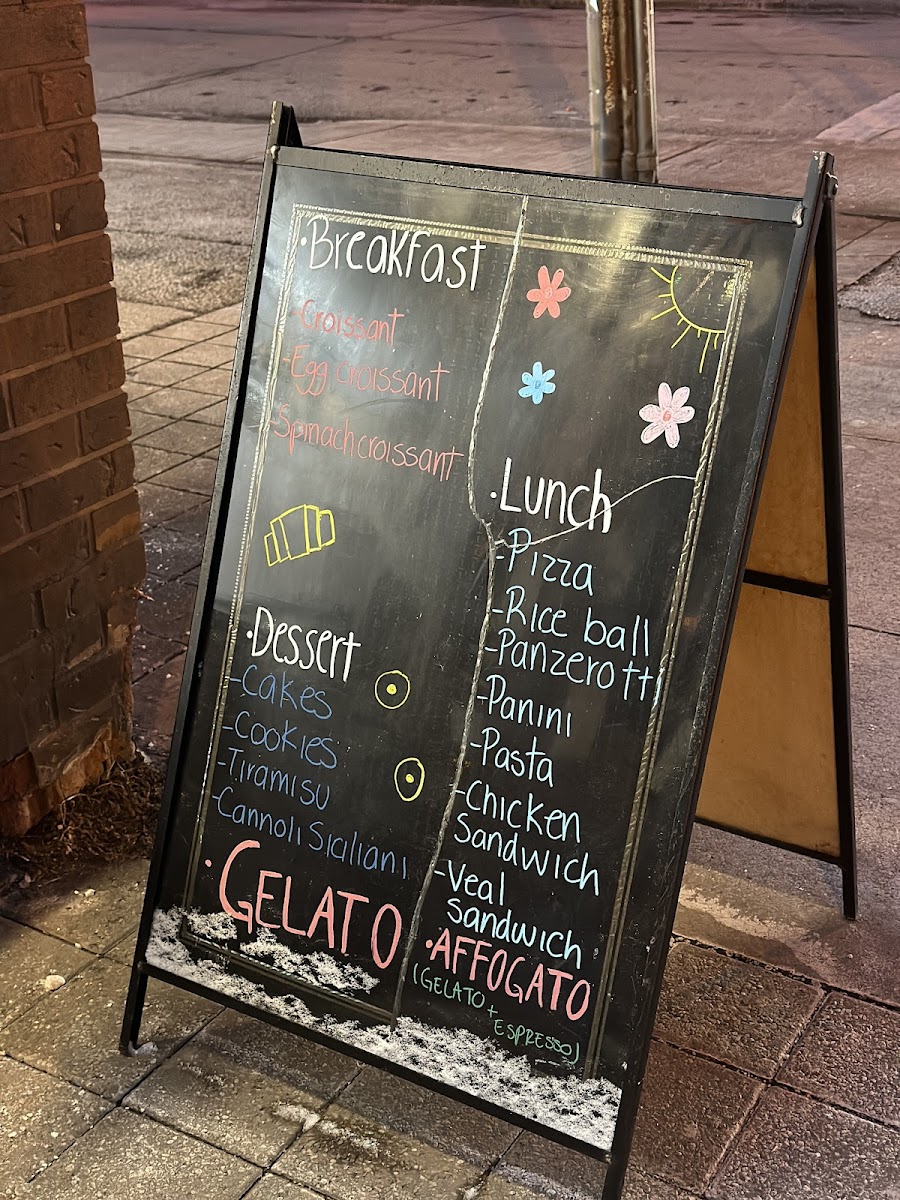 ·Breakfast
-Croissant
-Egg croissant
-Spinach croissant
·Dessert
-Cakes
-Cookies
-Tiramisu
-Cannoli Siciliani
·GELATO
·Lunch
-Pizza
-Rice ball
-Panzerotti
-Panini
-Pasta
-Chicken
Sandwich
-Veal
Sandwich
·AFFOGATO
(GELATO +
ESPRESSO)